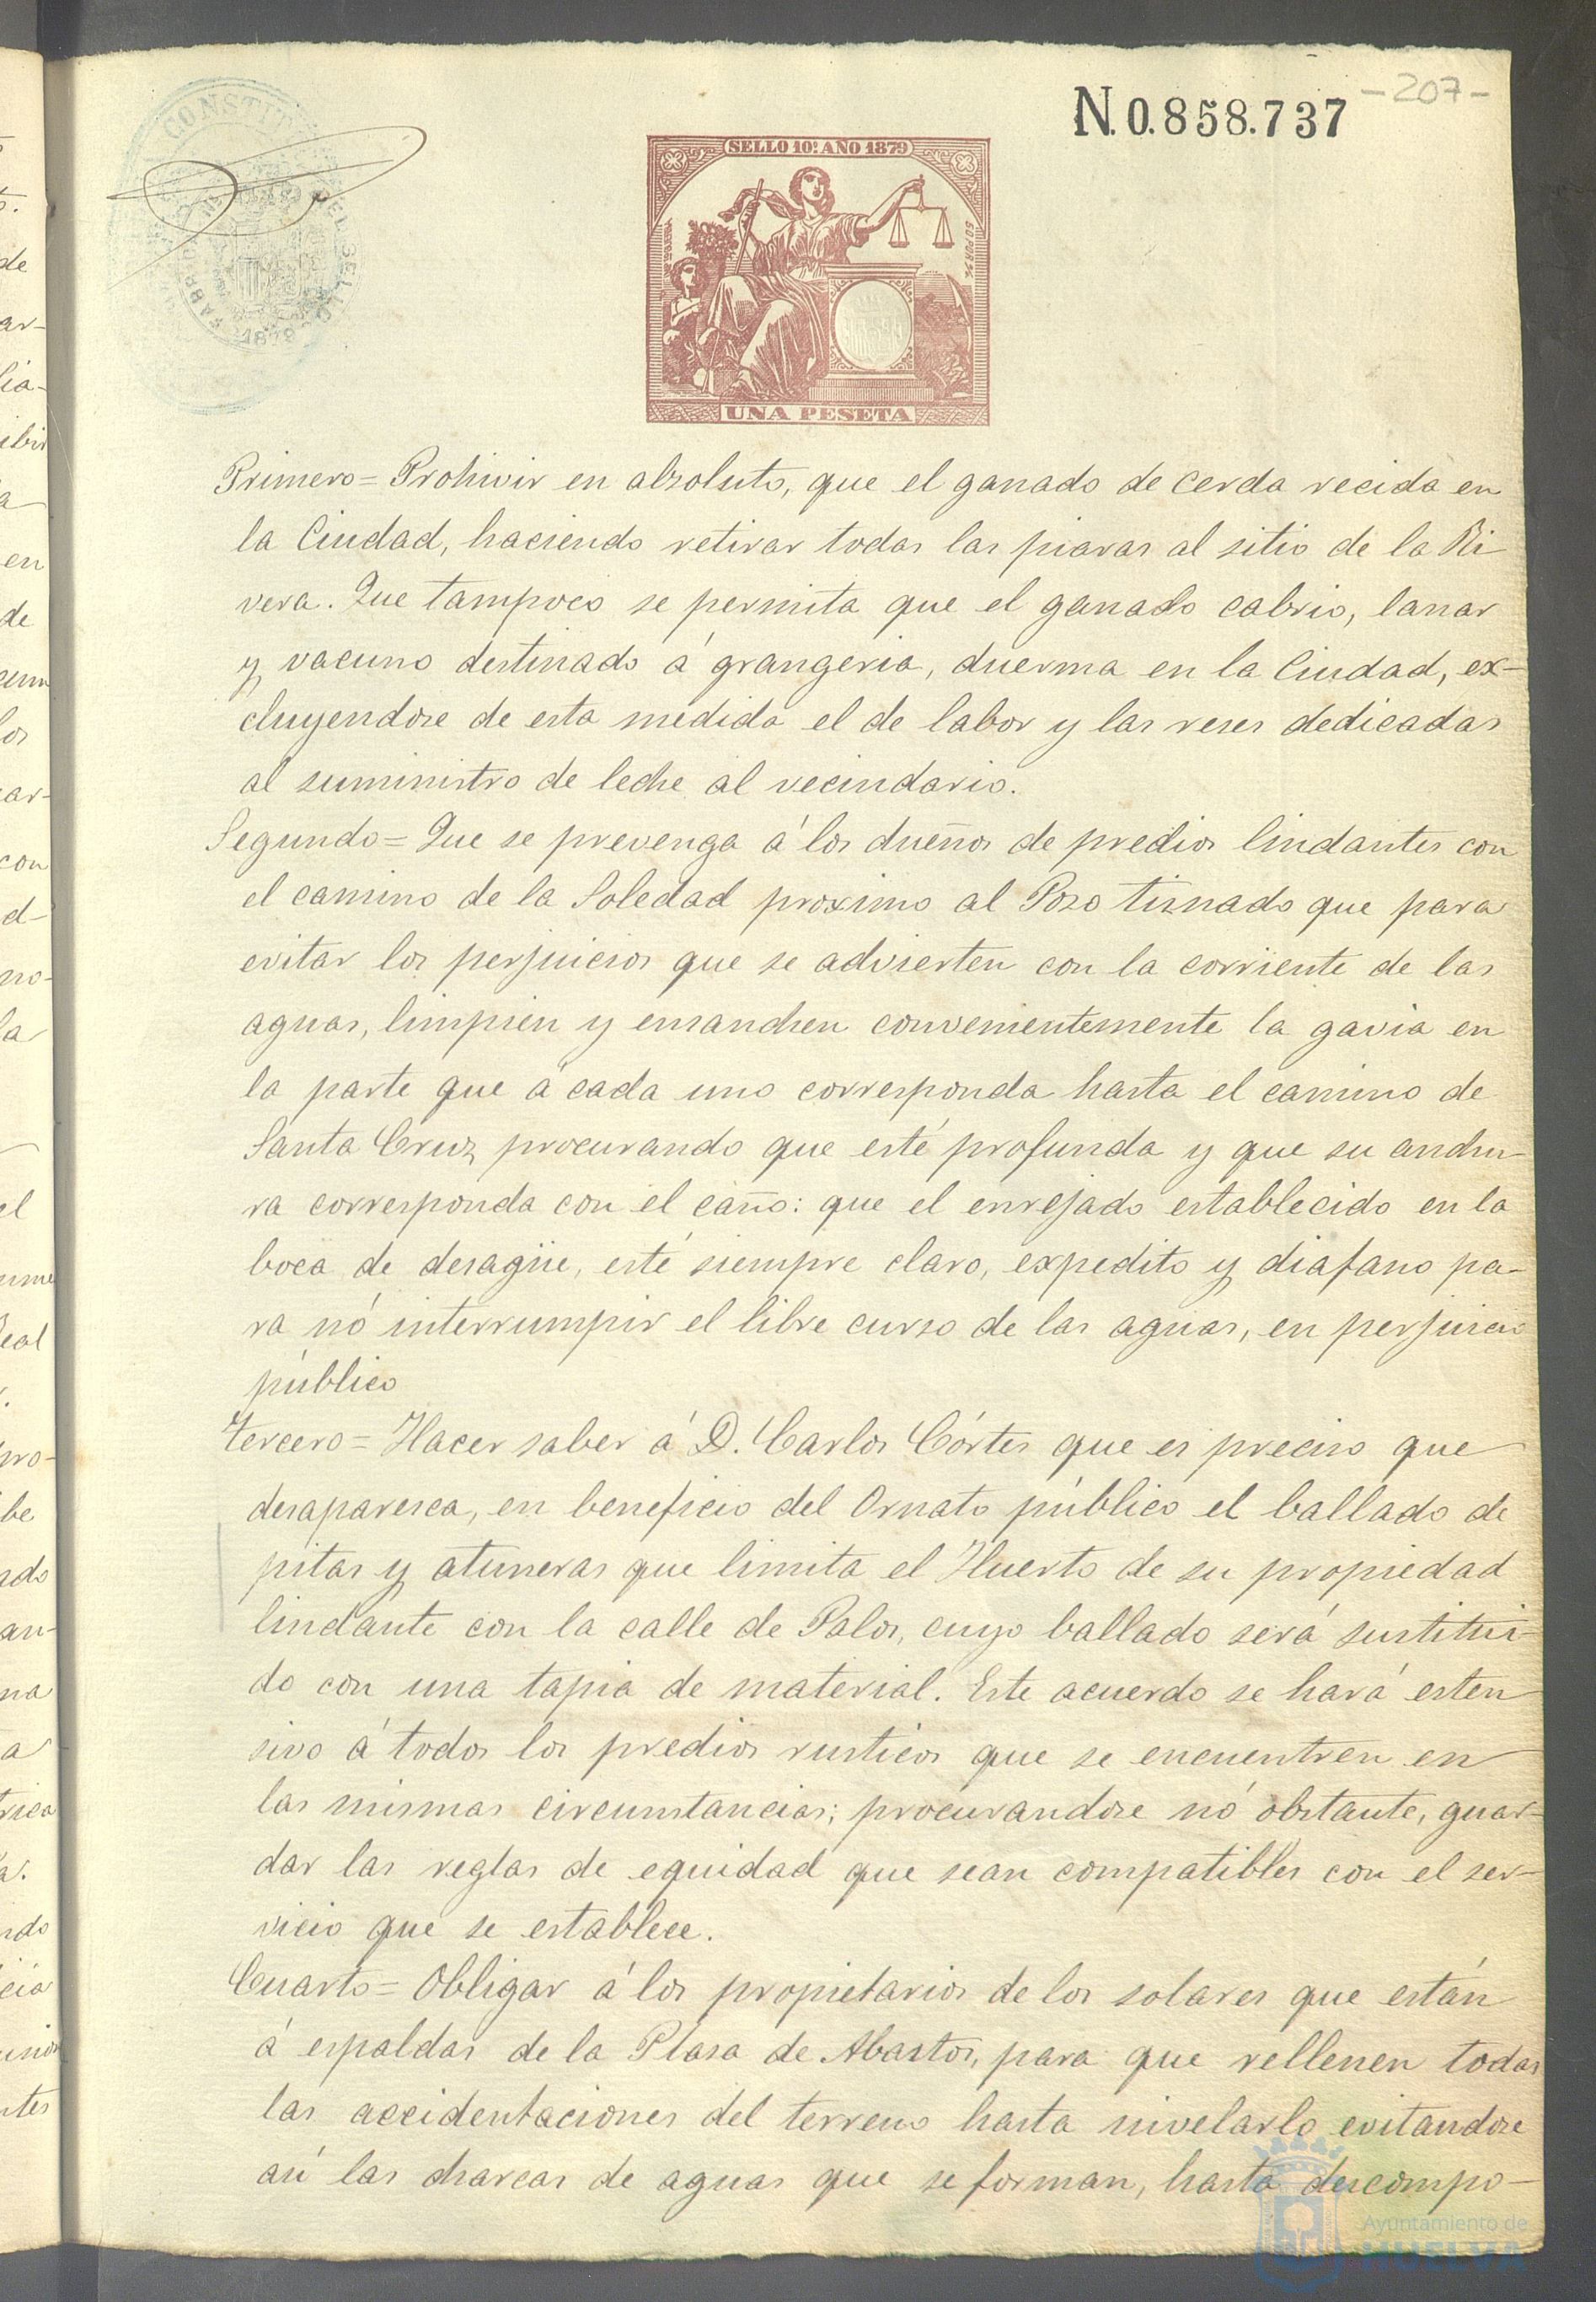 -207-
N.0.858.737
CONSTIT
DEL SELLO
1879
SELLO 10º AÑO 1879
UNA PESETA
Primero = Prohivir en absoluto, que el ganado de cerda recida en
la Ciudad, haciendo retirar todas las piaras al sitio de la Ri
vera. Que tampoco se permita que el ganado cabrio, lanar
y vacuno destinado á grangeria, duerma en la Ciudad, ex-
cluyendose de esta medida el de labor y las reses dedicadas
al suministro de leche al vecindario.
Segundo = Que se prevenga á los dueños de predios lindantes con
el camino de la Soledad proximo al Poso tisnado que para
evitar los perjuicios que se advierten con la corriente de las
aguas, limpien y ensanchen convenientemente la gavia en
la parte que á cada uno corresponda hasta el camino de
Santa Cruz, procurando que esté profunda y que su anchu-
ra corresponda con el caño: que el enrejado establecido en la
boca de desagüe, esté siempre claro, expedito y diafano pa-
ra nó interrumpir el libre curso de las aguas, en perjuicio
público
Tercero = Hacer saber á D. Carlos Córtes que es preciso que
desaparesca, en beneficio del Ornato público el ballado de
pitas y atuneras que limita el Huerto de su propiedad
lindante con la calle de Palos, cuyo ballado será sustitui-
do con una tapia de material. Este acuerdo se hará esten
sivo á todos los predios rusticos que se encuentren en
las mismas circumstancias; procurandose nó obstante, guar-
dar las reglas de equidad que sean compatibles con el ser-
vicio que se establece.
Cuarto = Obligar á los propietarios de los solares que están
á espaldas de la Plasa de Abastos, para que rellenen todas
las accidentaciones del terreno hasta nivelarlo evitandose
asi las charcas de aguas que se forman, hasta descompo-
Ayuntamiento de
HUELVA